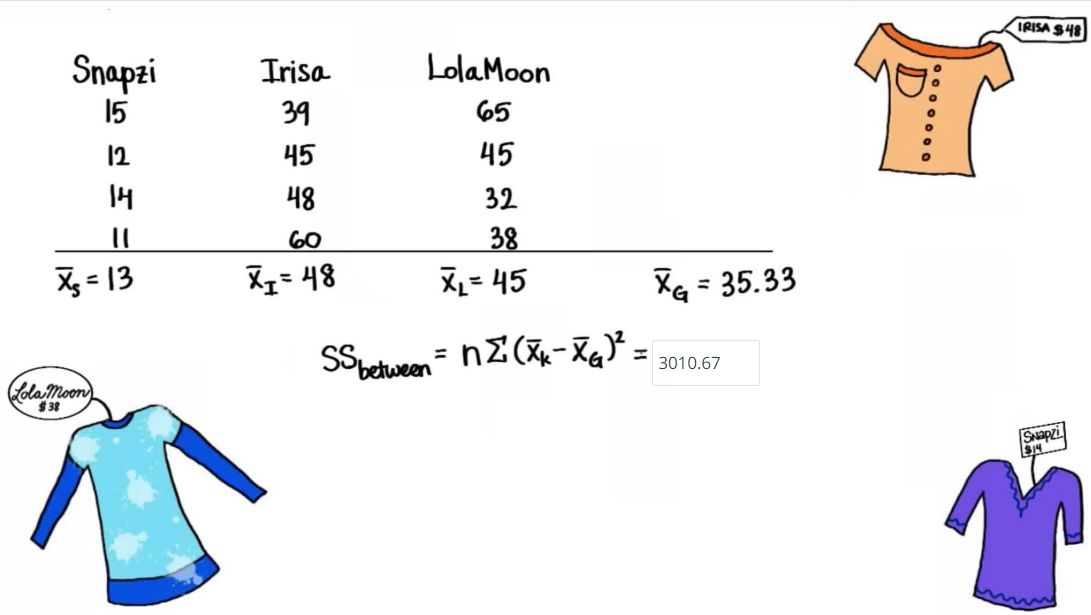 IRISA $48
Snapzi Irisa LolaMoon
15 39 65
12 45 45
14 48 32
11 60 38
x̄S = 13 x̄I = 48 x̄L = 45 x̄G = 35.33
SSbetween = n Σ (x̄k - x̄G)² = 3010.67
LolaMoon
$38
Snapzi
$14